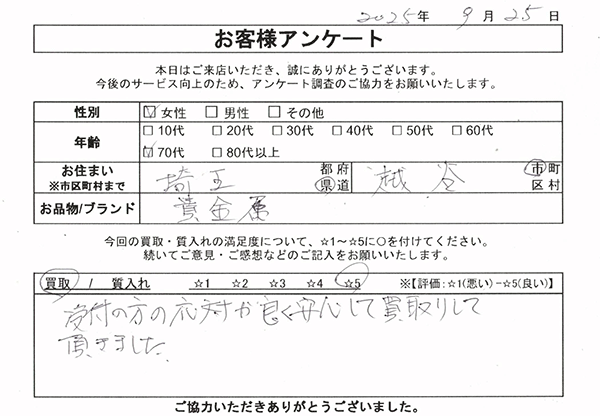 2025年 9月 25日
お客様アンケート
本日はご来店いただき、誠にありがとうございます。
今後のサービス向上のため、アンケート調査のご協力をお願いいたします。
性別 ☑女性 □男性 □その他
年齢 □10代 □20代 □30代 □40代 □50代 □60代
☑70代 □80代以上
お住まい 埼玉 都府 越谷 市町
※市区町村まで 県道 区村
お品物/ブランド 貴金属
今回の買取・質入れの満足度について、☆1～☆5に○を付けてください。
続いてご意見・ご感想などのご記入をお願いいたします。
買取 / 質入れ ☆1 ☆2 ☆3 ☆4 ☆5 ※【評価:☆1(悪い)−☆5(良い)】
受付の方の応対が良く安心して買取りして
頂きました
ご協力いただきありがとうございました。